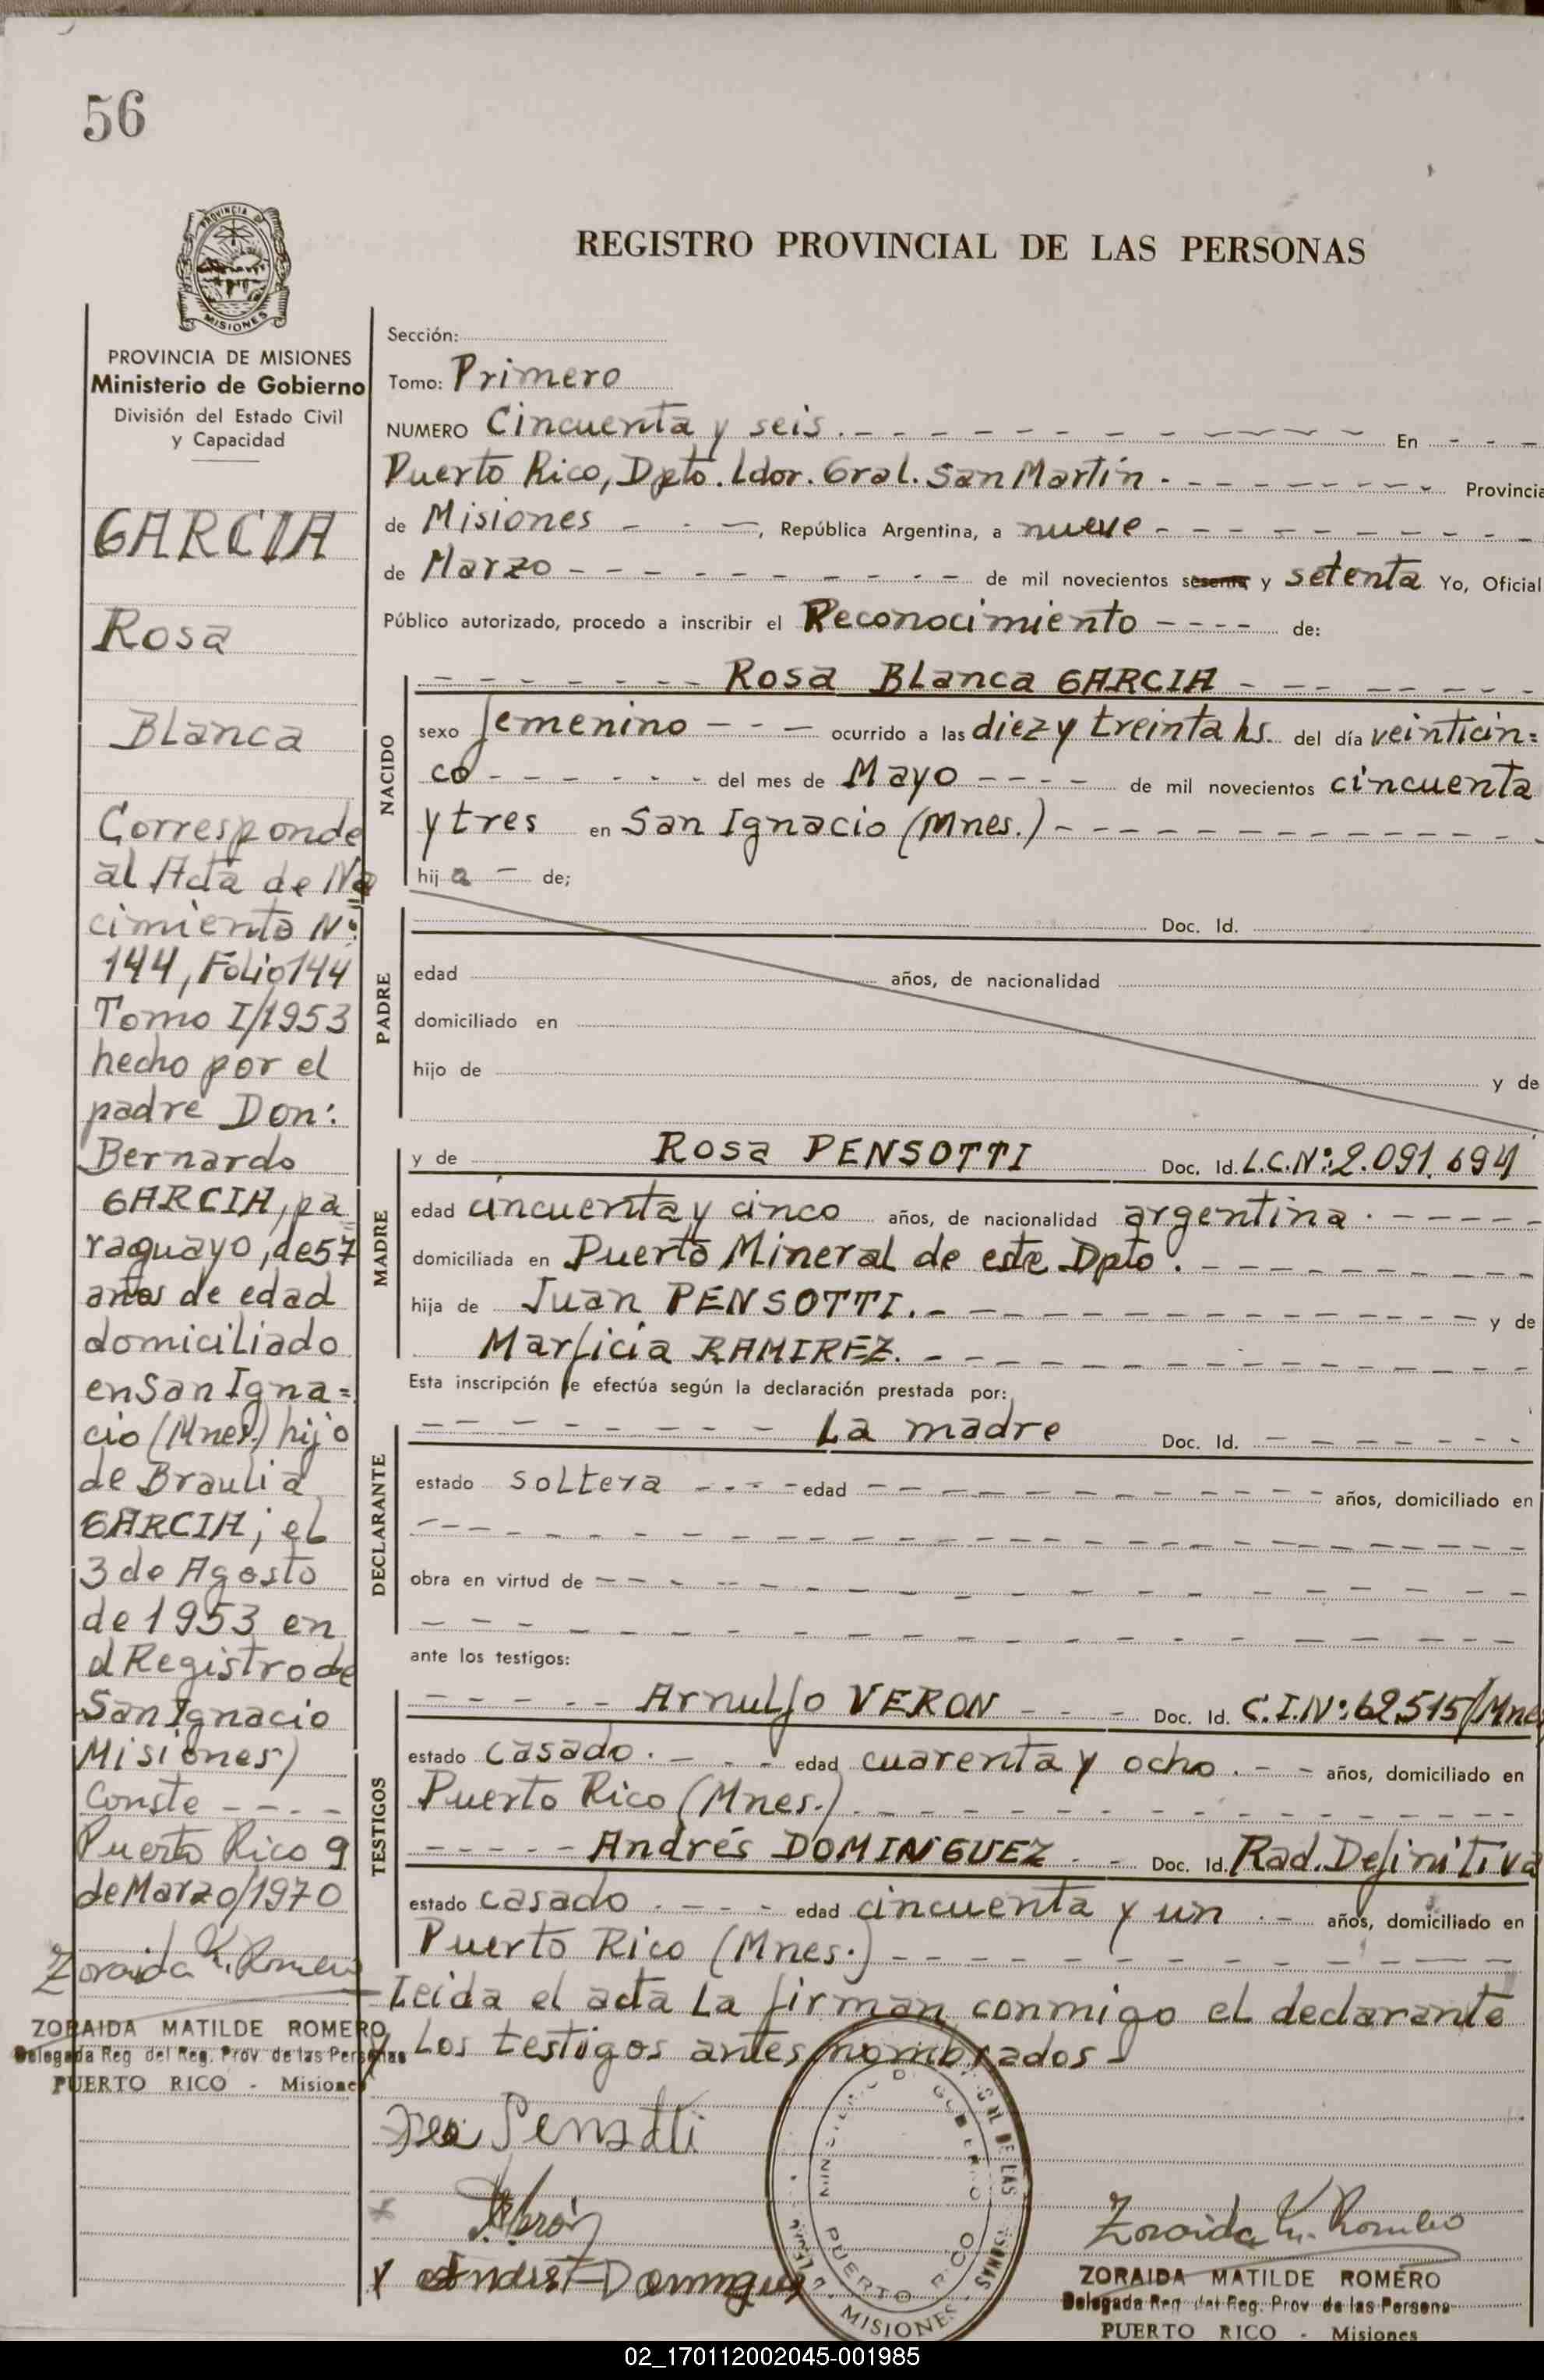 56
PROVINCIA DE
MISIONES
REGISTRO PROVINCIAL DE LAS PERSONAS
PROVINCIA DE MISIONES
Ministerio de Gobierno
División del Estado Civil
y Capacidad
GARCIA
Rosa
Blanca
Corresponde
al Acta de Na
cimiento Nº
144, Folio 144
Tomo I/1953
hecho por el
padre Don:
Bernardo
GARCIA, pa
raguayo, de 57
años de edad
domiciliado
en San Igna=
cio (Mnes.) hijo
de Braulia
GARCIA; el
3 de Agosto
de 1953 en
el Registro de
San Ignacio
Misiones)
Conste - - - -
Puerto Rico 9
de Marzo/1970
Zoraida M. Romero
ZORAIDA MATILDE ROMERO
Delegada Reg del Reg. Prov de las Personas
PUERTO RICO - Misiones
Sección:
Tomo: Primero
NUMERO Cincuenta y seis. - - - En - - -
Puerto Rico, Dpto. Ldor. Gral. San Martín - - - Provincia
de Misiones - - -, República Argentina, a nueve - - -
de Marzo - - - de mil novecientos sesenta y setenta Yo, Oficial
Público autorizado, procedo a inscribir el Reconocimiento - - - - de:
NACIDO
- - - Rosa Blanca GARCIA - - -
sexo femenino - - - ocurrido a las diez y treinta hs. del día veinticin=
co - - - del mes de Mayo - - - - de mil novecientos cincuenta
y tres en San Ignacio (Mnes.) - - -
hij a - de;
PADRE
Doc. Id.
edad años, de nacionalidad
domiciliado en
hijo de y de
MADRE
y de Rosa PENSOTTI Doc. Id. L.C.Nº:2.091.694
edad cincuenta y cinco años, de nacionalidad argentina. - - -
domiciliada en Puerto Mineral de este Dpto. - - -
hija de Juan PENSOTTI. - - - y de
Marficia RAMIREZ. - - -
Esta inscripción se efectúa según la declaración prestada por:
DECLARANTE
- - - La madre Doc. Id. - - -
estado soltera - - - - edad - - - años, domiciliado en
- - -
obra en virtud de - - -
- - -
ante los testigos:
TESTIGOS
- - - Arnulfo VERON - - - Doc. Id. C.I.Nº:62515/Mnes
estado casado. - - - edad cuarenta y ocho. - - años, domiciliado en
Puerto Rico (Mnes.). - - -
- - - Andrés DOMINGUEZ - - Doc. Id. Rad. Definitiva
estado casado. - - - edad cincuenta y un. - años, domiciliado en
Puerto Rico (Mnes.) - - -
Leida el acta la firman conmigo el declarante
y los testigos antes nombrados -
Pensotti
MISIONES
PUERTO RICO
Verón
Zoraida M. Romero
Andrés Dominguez
ZORAIDA MATILDE ROMERO
Delegada Reg del Reg. Prov de las Persona
PUERTO RICO - Misiones
02_170112002045-001985